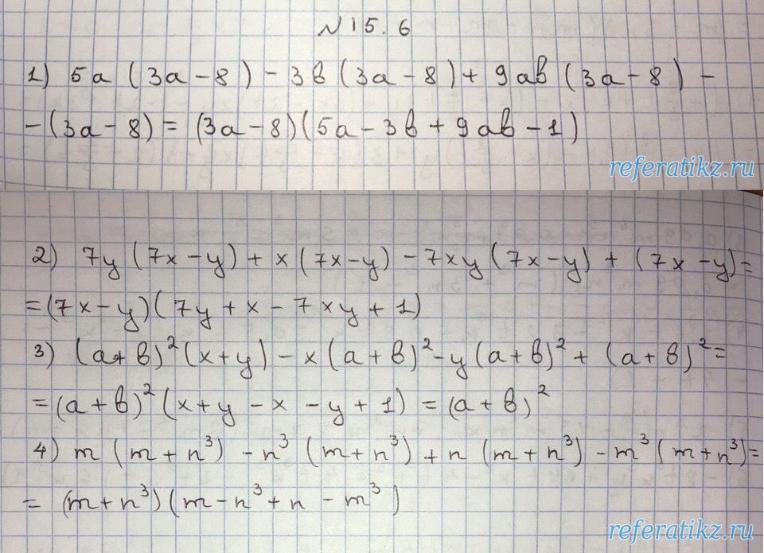 №15.6
1) 5a (3a-8) - 3b (3a-8) + 9ab (3a-8) -
-(3a-8) = (3a-8)(5a-3b+9ab-1)
referatikz.ru
2) 7y (7x-y) + x (7x-y) - 7xy (7x-y) + (7x-y)=
=(7x-y)(7y+x-7xy+1)
3) (a+b)²(x+y) - x(a+b)² - y(a+b)² + (a+b)²=
=(a+b)²(x+y-x-y+1) = (a+b)²
4) m (m+n³) - n³ (m+n³) + n (m+n³) - m³(m+n³)=
= (m+n³)(m-n³+n-m³)
referatikz.ru